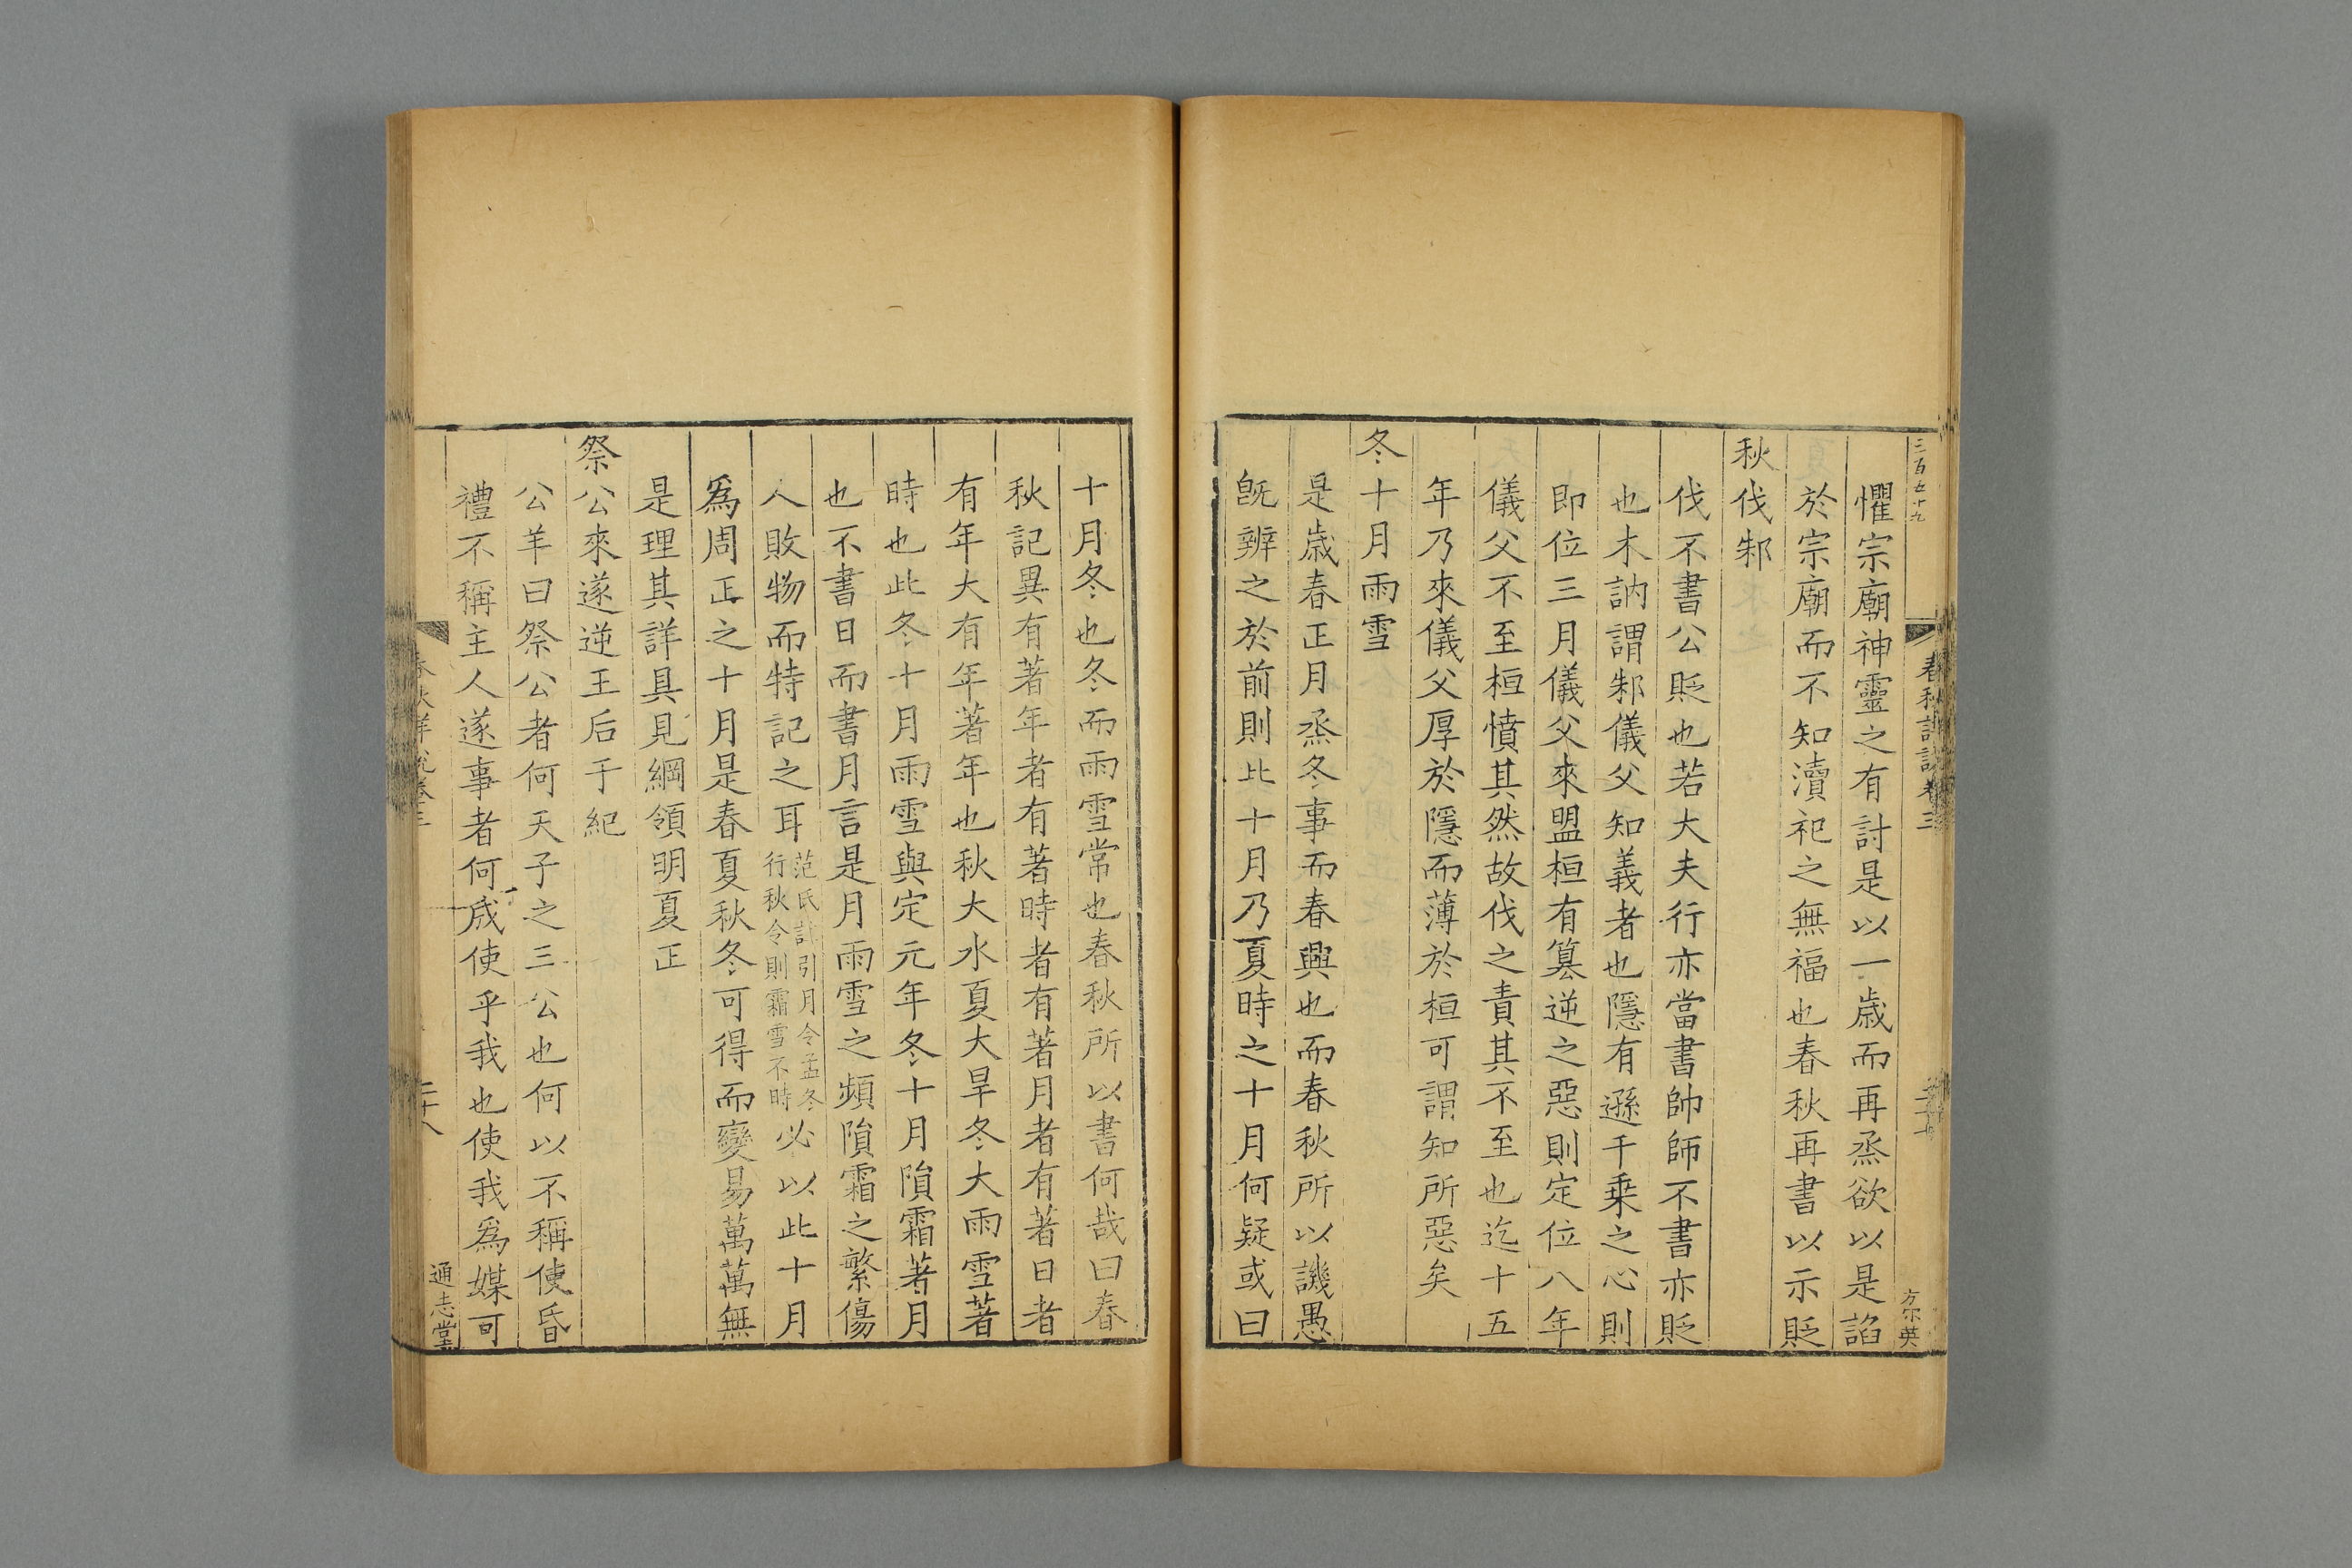 三百五十九
春秋詳說卷三
方宗英
懼宗廟神靈之有討是以一歲而再烝欲以是諂
於宗廟而不知瀆祀之無福也春秋再書以示貶
秋伐邾
伐不書公貶也若大夫行亦當書帥師不書亦貶
也木訥謂邾儀父知義者也隱有遜千乗之心則
即位三月儀父來盟桓有篡逆之惡則定位八年
儀父不至桓憤其然故伐之責其不至也迄十五
年乃來儀父厚於隱而薄於桓可謂知所惡矣
冬十月雨雪
是歲春正月烝冬事而春興也而春秋所以譏愚
旣辨之於前則此十月乃夏時之十月何疑或曰
十月冬也冬而雨雪常也春秋所以書何哉曰春
秋記異有著年者有著時者有著月者有著日者
有年大有年著年也秋大水夏大旱冬大雨雪著
時也此冬十月雨雪與定元年冬十月隕霜著月
也不書日而書月言是月雨雪之頻隕霜之繁傷
人敗物而特記之耳范氏註引月令孟冬行秋令則霜雪不時必以此十月
爲周正之十月是春夏秋冬可得而變易萬萬無
是理其詳具見綱領明夏正
祭公來遂逆王后于紀
公羊曰祭公者何天子之三公也何以不稱使昏
禮不稱主人遂事者何成使乎我也使我爲媒可
春秋詳說卷三
二十八
通志堂